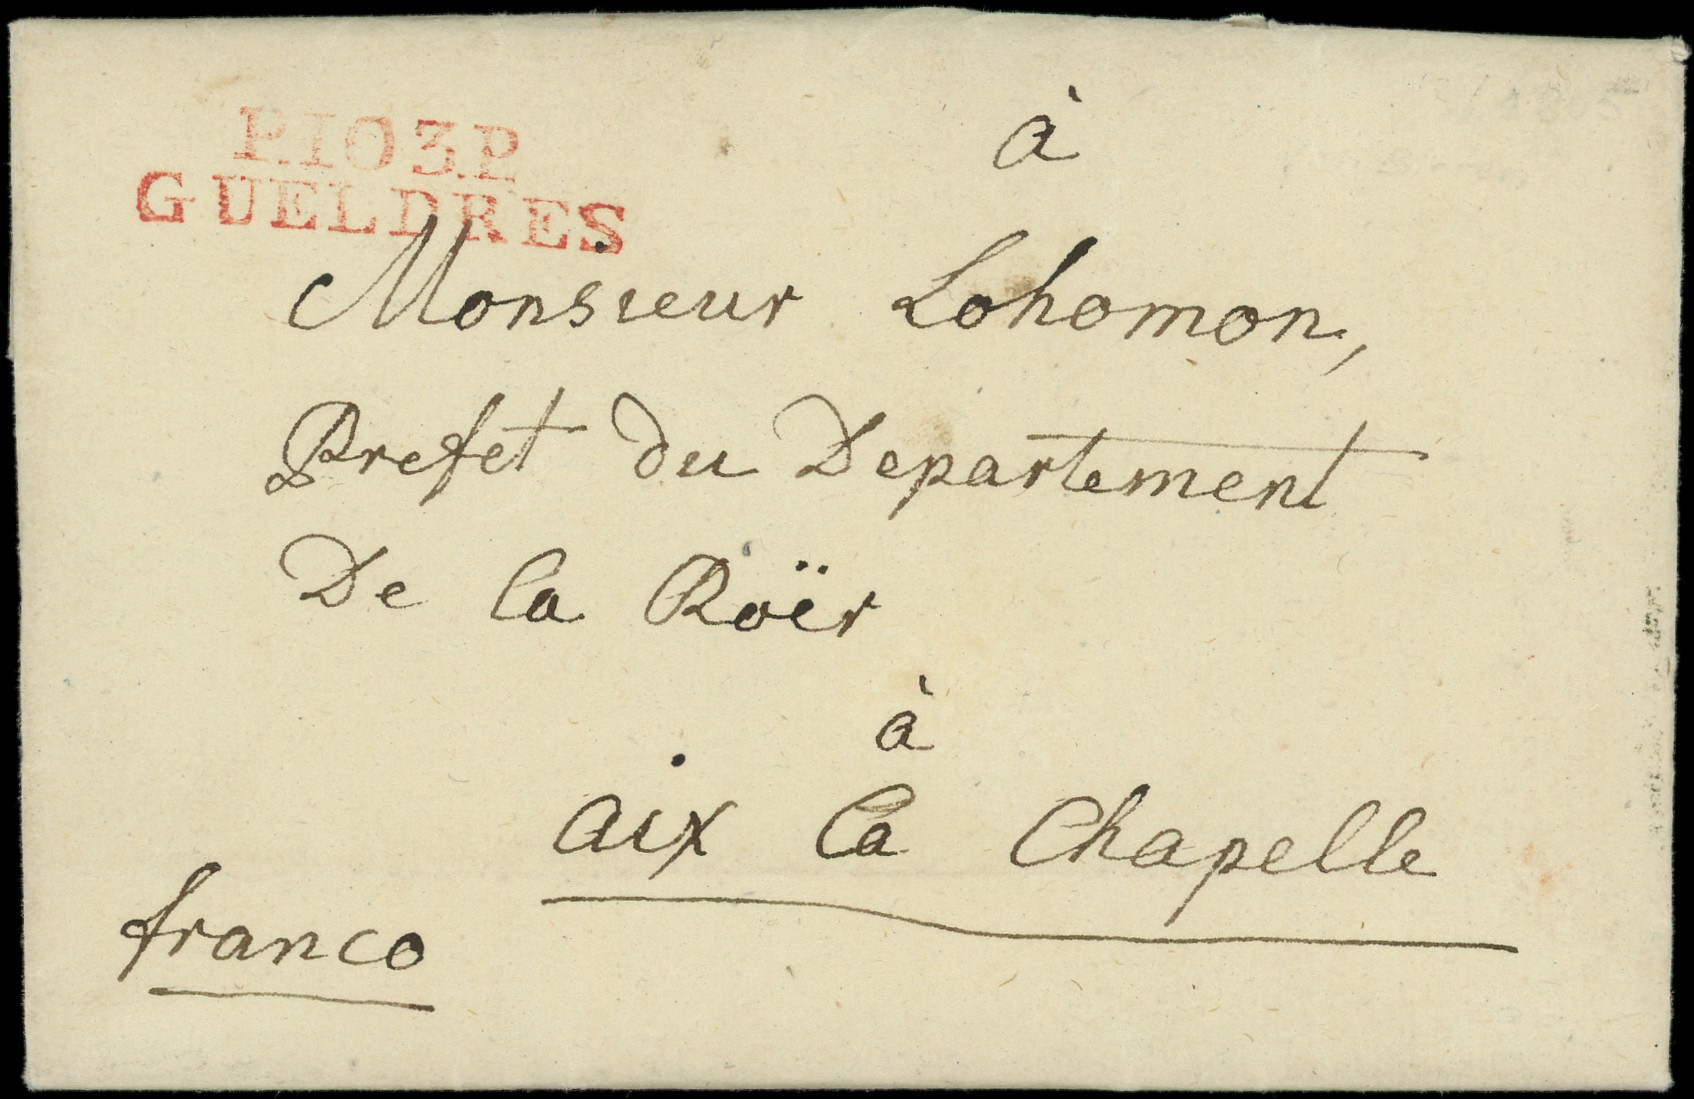 P.103.P.
GUELDRES
à
Monsieur Lohomon,
Prefet du Departement
De la Roër
à
aix la Chapelle
franco